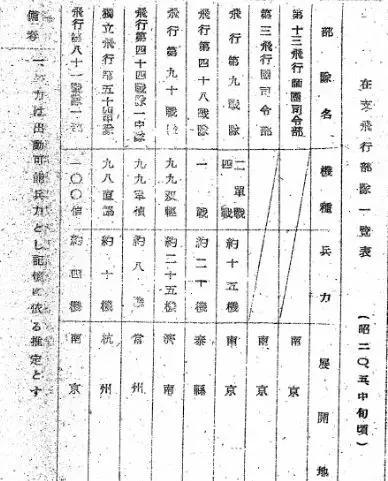 在支飛行部隊一覽表 (昭二〇、五中旬頃)
部隊名 機種 兵力 展開地
第十三飛行師團司令部 南京
第三飛行團司令部 南京
飛行第九戰隊 二單戰 四戰 約十五機 南京
飛行第四十八戰隊 一戰 約二十機 泰縣
飛行第九十戰隊 九九双輕 約二十五機 濟南
飛行第四十四戰隊一中隊 九九軍偵 約八機 常州
獨立飛行第五十四中隊 九八直協 約十機 杭州
飛行第八十一戰隊一部 一〇〇偵 約四機 南京
備考 一、兵力は出動可能兵力とし記憶に依る推定とす